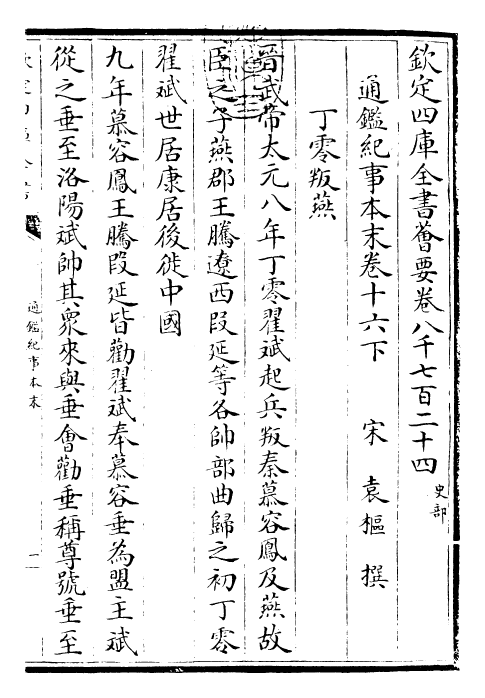 欽定四庫全書薈要卷八千七百二十四
史部
通鑑紀事本末卷十六下
宋 袁樞 撰
丁零叛燕
晉武帝太元八年丁零翟斌起兵叛秦慕容鳳及燕故
臣之子燕郡王騰遼西段延等各帥部曲歸之初丁零
翟斌世居康居後徙中國
九年慕容鳳王騰段延皆勸翟斌奉慕容垂為盟主斌
從之垂至洛陽斌帥其衆來與垂會勸垂稱尊號垂至
通鑑紀事本末
一